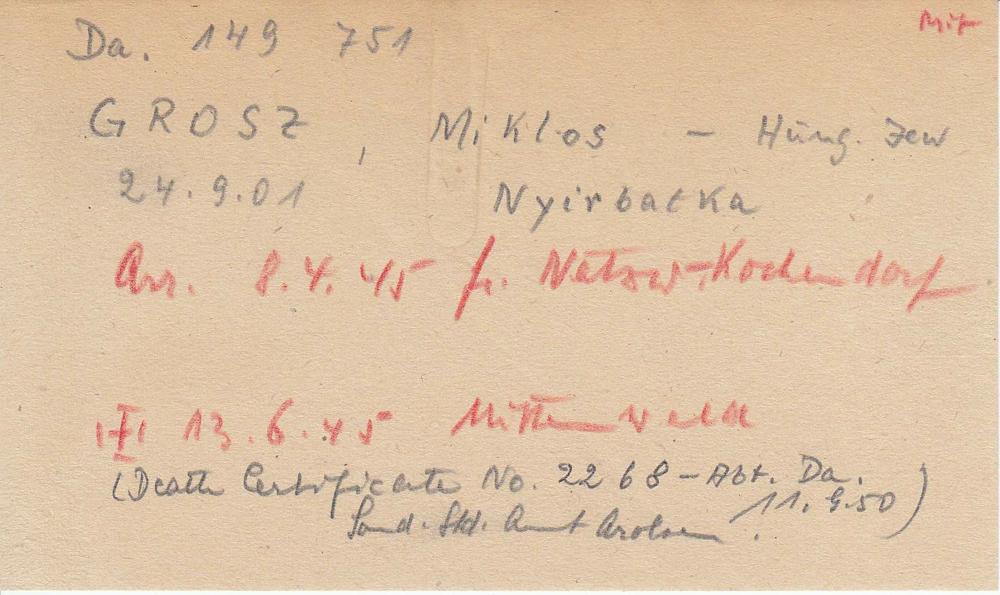 Mit
Da. 149 751
GROSZ, Miklos - Hung. Jew
24.9.01 Nyirbatka
Arr. 8.4.45 fr. Natzw-Kochendorf
13.6.45 Mittenwald
(Death Certificate No. 2268 - Abt. Da.
Sond. Std. Amt Arolsen 11.9.50)